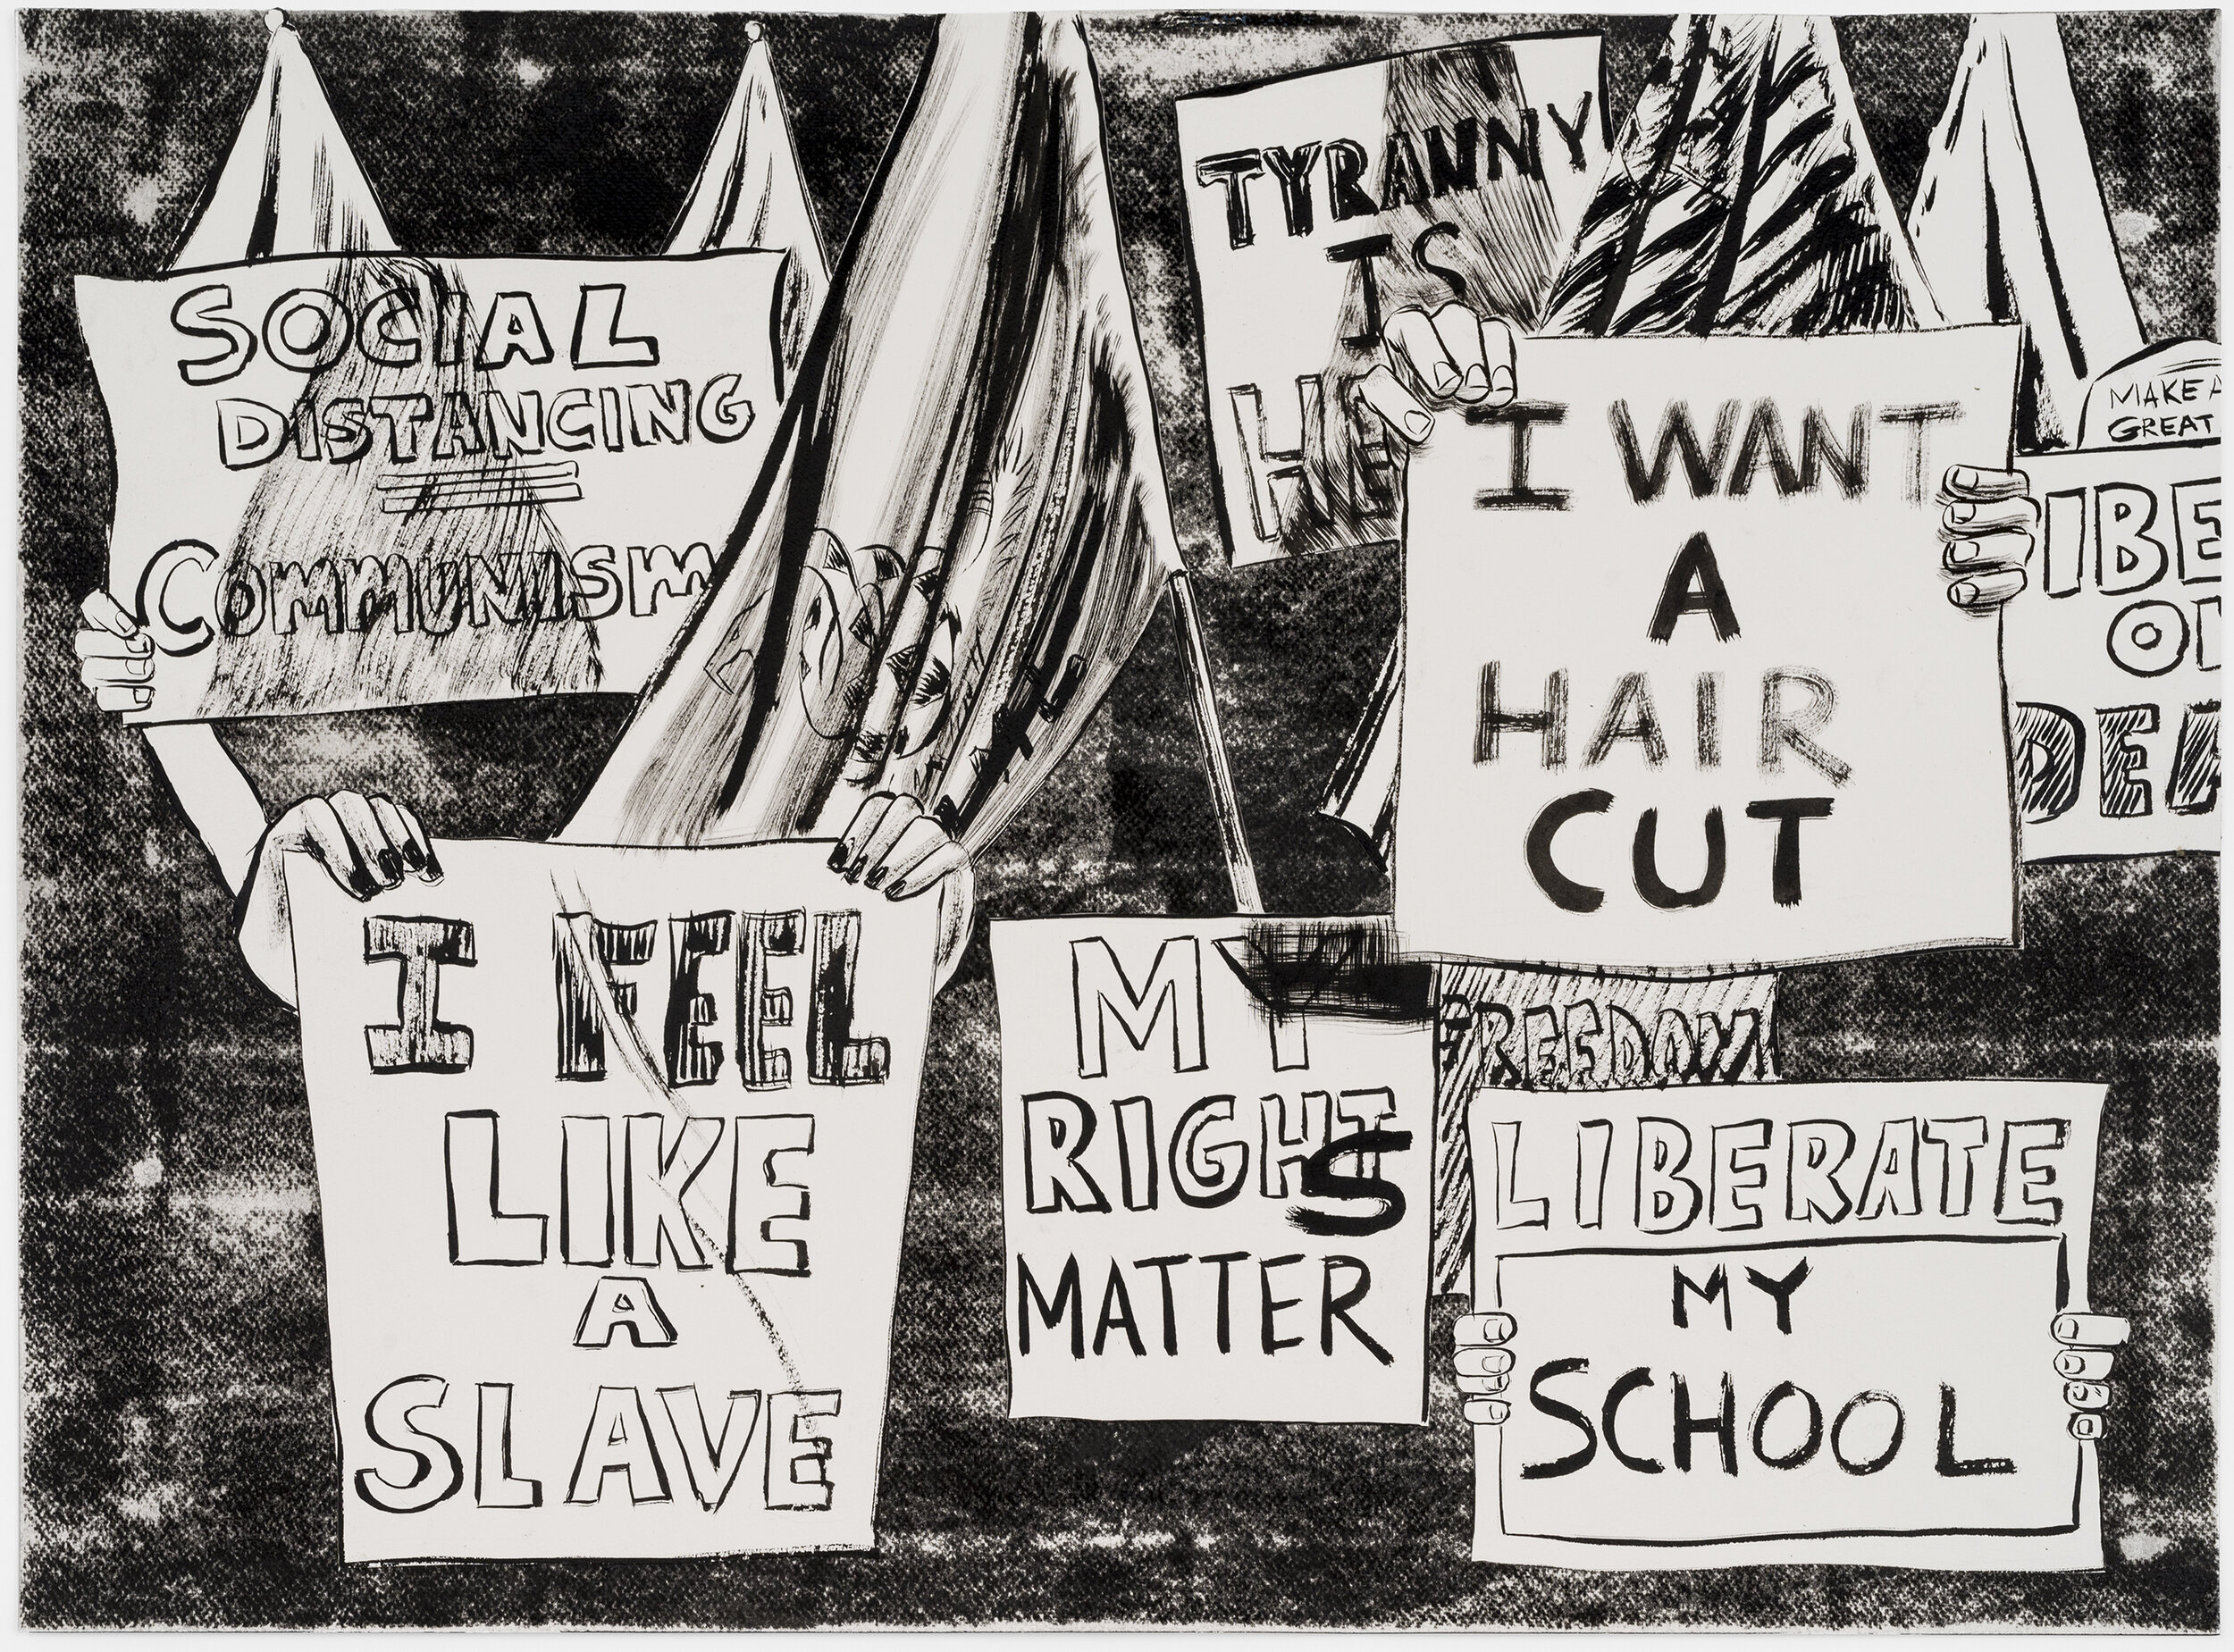 SOCIAL
DISTANCING
COMMUNISM
TYRANNY
IS
HE
I WANT
A
HAIR
CUT
MAKE A
GREAT
IBE
O
DEA
I FEEL
LIKE
A
SLAVE
MY
RIGHTS
MATTER
FREEDOM
LIBERATE
MY
SCHOOL